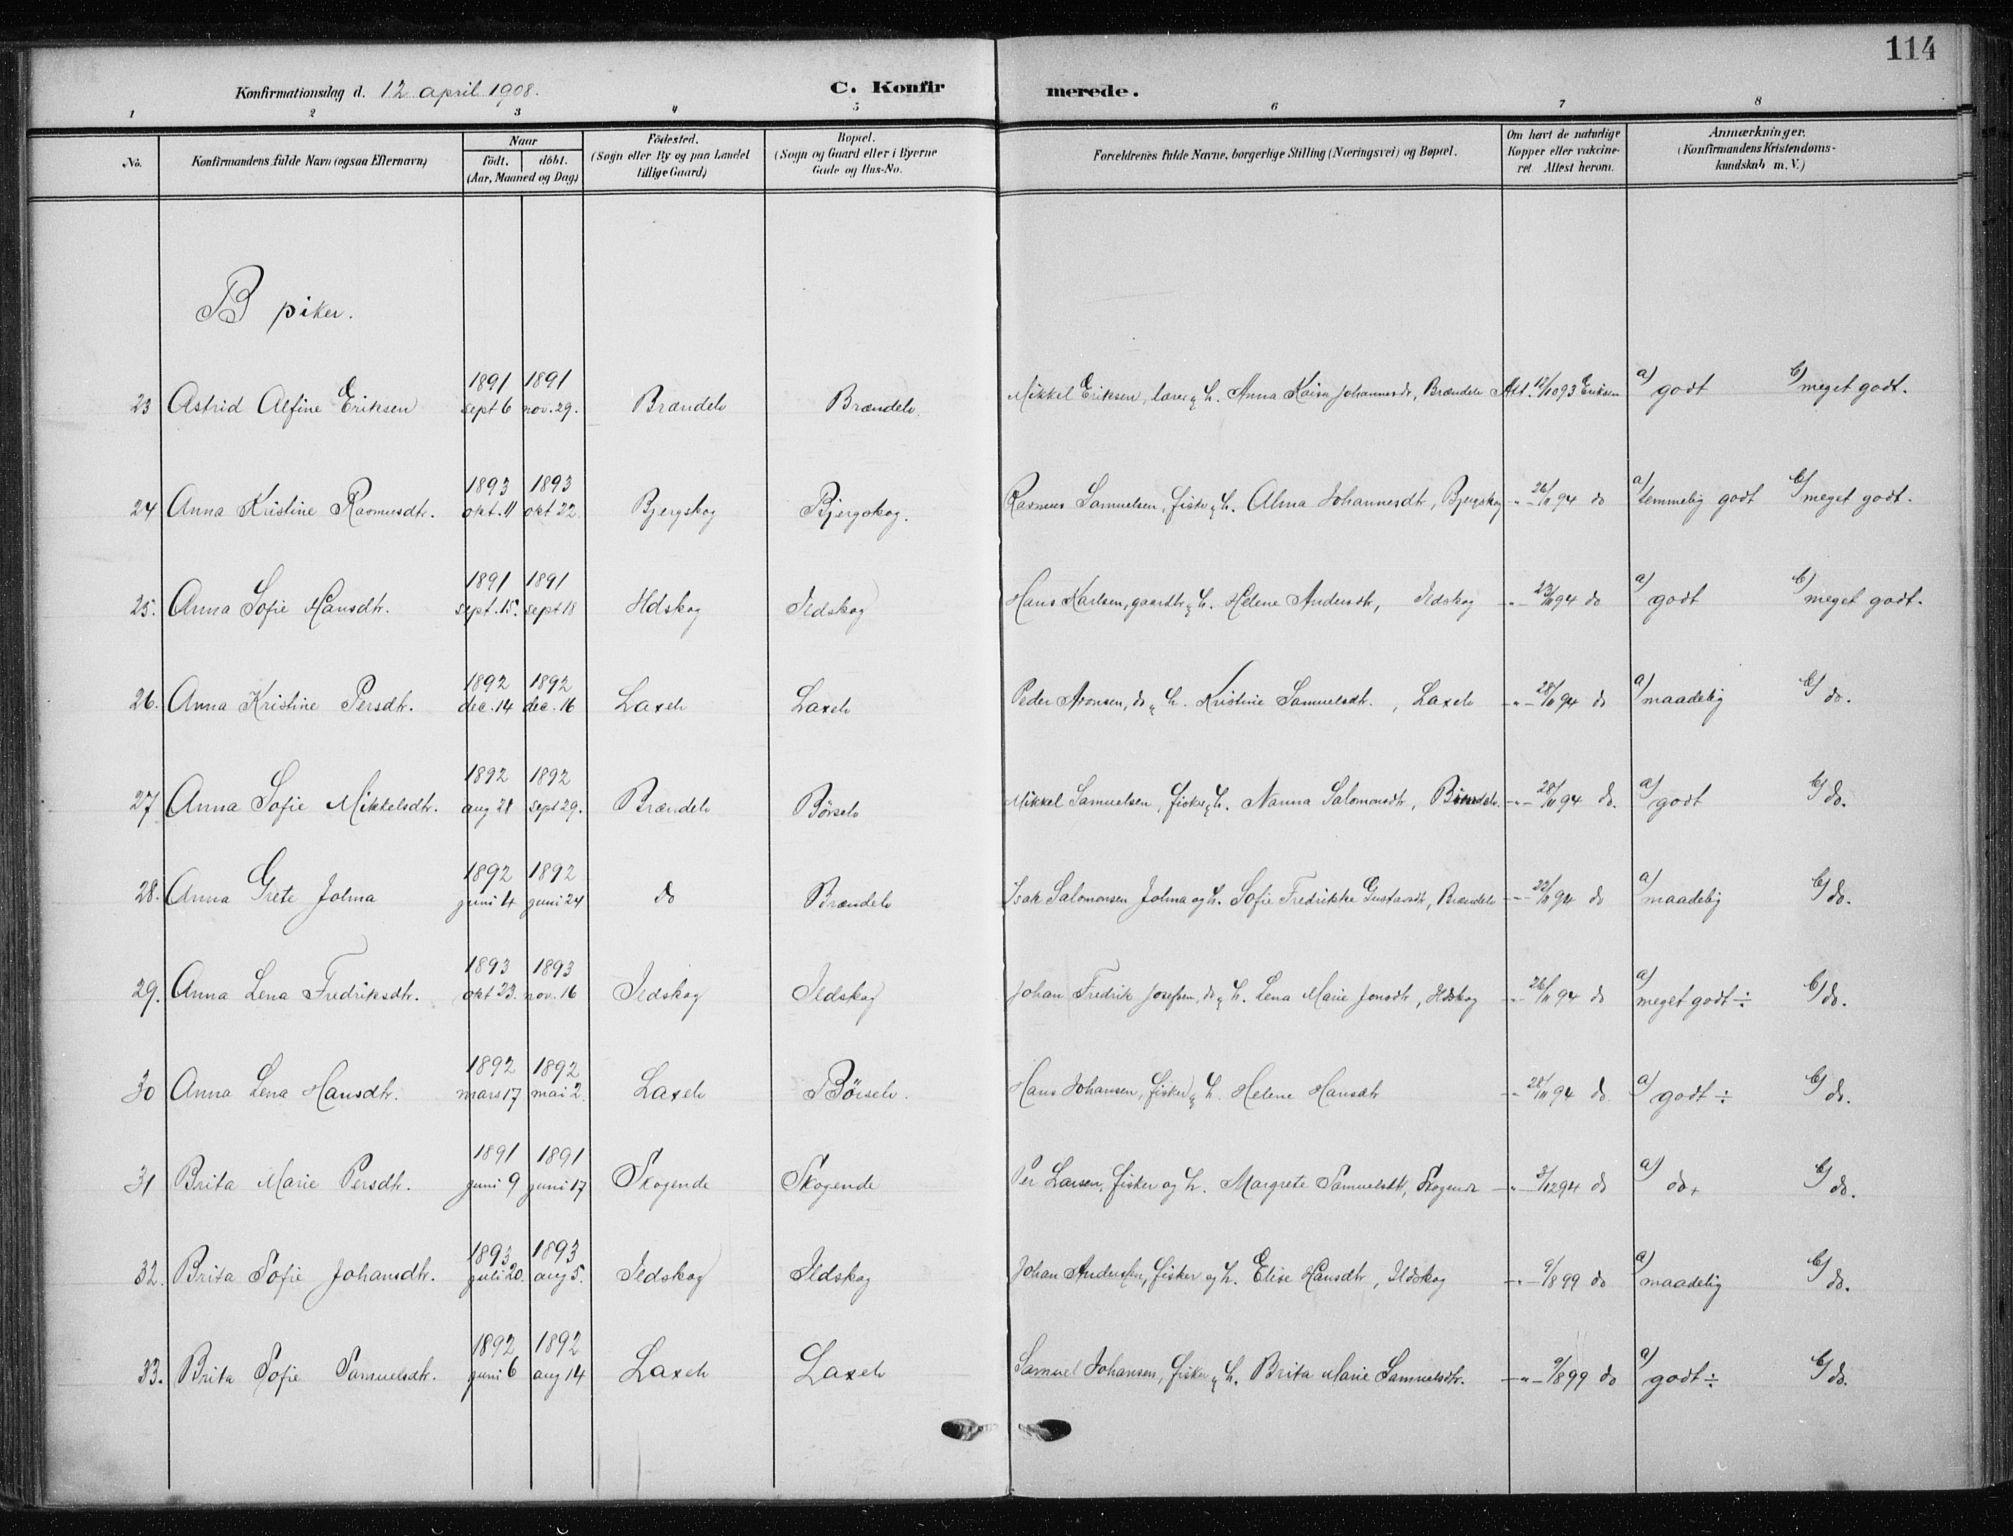 114
Konfirmationsdag d. 12 april 1908. C. Konfirmerede.
1 2 3 4 5 6 7 8
No. Konfirmandens fulde Navn (ogsaa Efternavn) Naar født. døbt. (Aar, Maaned og Dag) Fødested. (Sogn eller By og paa Landet tillige Gaard) Bopæl. (Sogn og Gaard eller i Byerne Gade og Hus-No. Forældrenes fulde Navne, borgerlige Stilling (Næringsvei) og Bopæl. Om havt de naturlige Kopper eller vakcineret. Attest herom. Anmærkninger. (Konfirmandens Kristendomskundskab m. V.)
B piker.
23 Astrid Alfine Eriksen 1891 sept 6 1891 nov. 29. Brændelv Brændelv. Mikkel Eriksen, lærer & h. Anna Kaisa Johannesdr, Brændelv Att. 12/10 93 Eriksen a) godt b) meget godt.
24 Anna Kristine Rasmusdtr. 1893 okt. 11 1893 okt 22 Bjergskog Bjergskog. Rasmus Samuelsen, fisker & h. Alma Johannesdtr, Bjergskog -"- 26/11 94 do a) temmelig godt b) meget godt.
25. Anna Sofie Hansdtr. 1891 sept. 15. 1891 sept 18 Ildskog Ildskog Hans Karlsen, gaardbr & h. Helene Andersdtr, Ildskog -"- 23/11 94 do a) godt b) meget godt.
26. Anna Kristine Persdtr. 1892 dec. 14 1892 dec. 16 Laxelv Laxelv Peder Aronsen, do & h. Kristine Samuelsdtr. , Laxelv -"- 28/11 94 do a) maadelig b) do.
27 Anna Sofie Mikkelsdtr. 1892 aug 28 1892 sept 29. Brændelv Børselv Mikkel Samuelsen, fisker & h. Nanna Salomonsdtr, Brændelv. -"- 28/11 94 do. a) godt b) do.
28. Anna Grete Jolma 1892 juni 4 1892 juni 24 do Brændelv Isak Salomonsen Jolma og h. Sofie Fredrikke Gustavsdtr, Brændelv -"- 22/11 94 do a) maadelig b) do.
29. Anna Lena Fredriksdtr. 1893 okt 23. 1893 nov. 16 Ildskog Ildskog Johan Fredrik Josefsen, do & h. Lena Marie Jonsdtr, Ildskog -"- 26/11 94 do a) meget godt ÷ b) do.
30 Anna Lena Hansdtr. 1892 mars 17 1892 mai 2. Laxelv Børselv. Hans Johansen, fisker & h. Helene Hansdtr -"- 28/11 94 do a) godt ÷ b) do.
31 Brita Marie Persdtr. 1891 juni 9 1891 juni 17 Skogende Skogende Per Larsen, fisker og h. Margrete Samuelsdtr, Skogende -"- 3/12 94 do a) do + b) do.
32. Brita Sofie Johansdtr. 1893 juli 20. 1893 aug 5. Ildskog Ildskog Johan Andersen, fisker og h. Elise Hansdtr, Ildskog -"- 9/8 99 do a) maadelig b) do.
33. Brita Sofie Samuelsdtr. 1892 juni 6 1892 aug 14 Laxelv Laxelv Samuel Johansen, fisker & h. Brita Marie Samuelsdtr. -"- 9/8 99 do a) godt ÷ b) do.